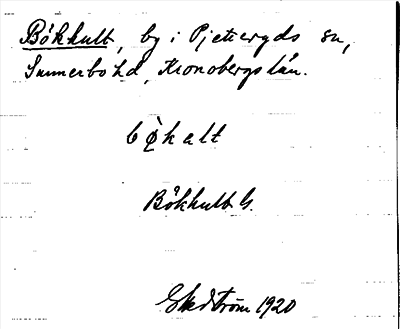 Bökhult, by i Pjetteryds sn,
Sunnerbo hd, Kronobergs län.
bökalt
Bökhult G.
Ekström 1920